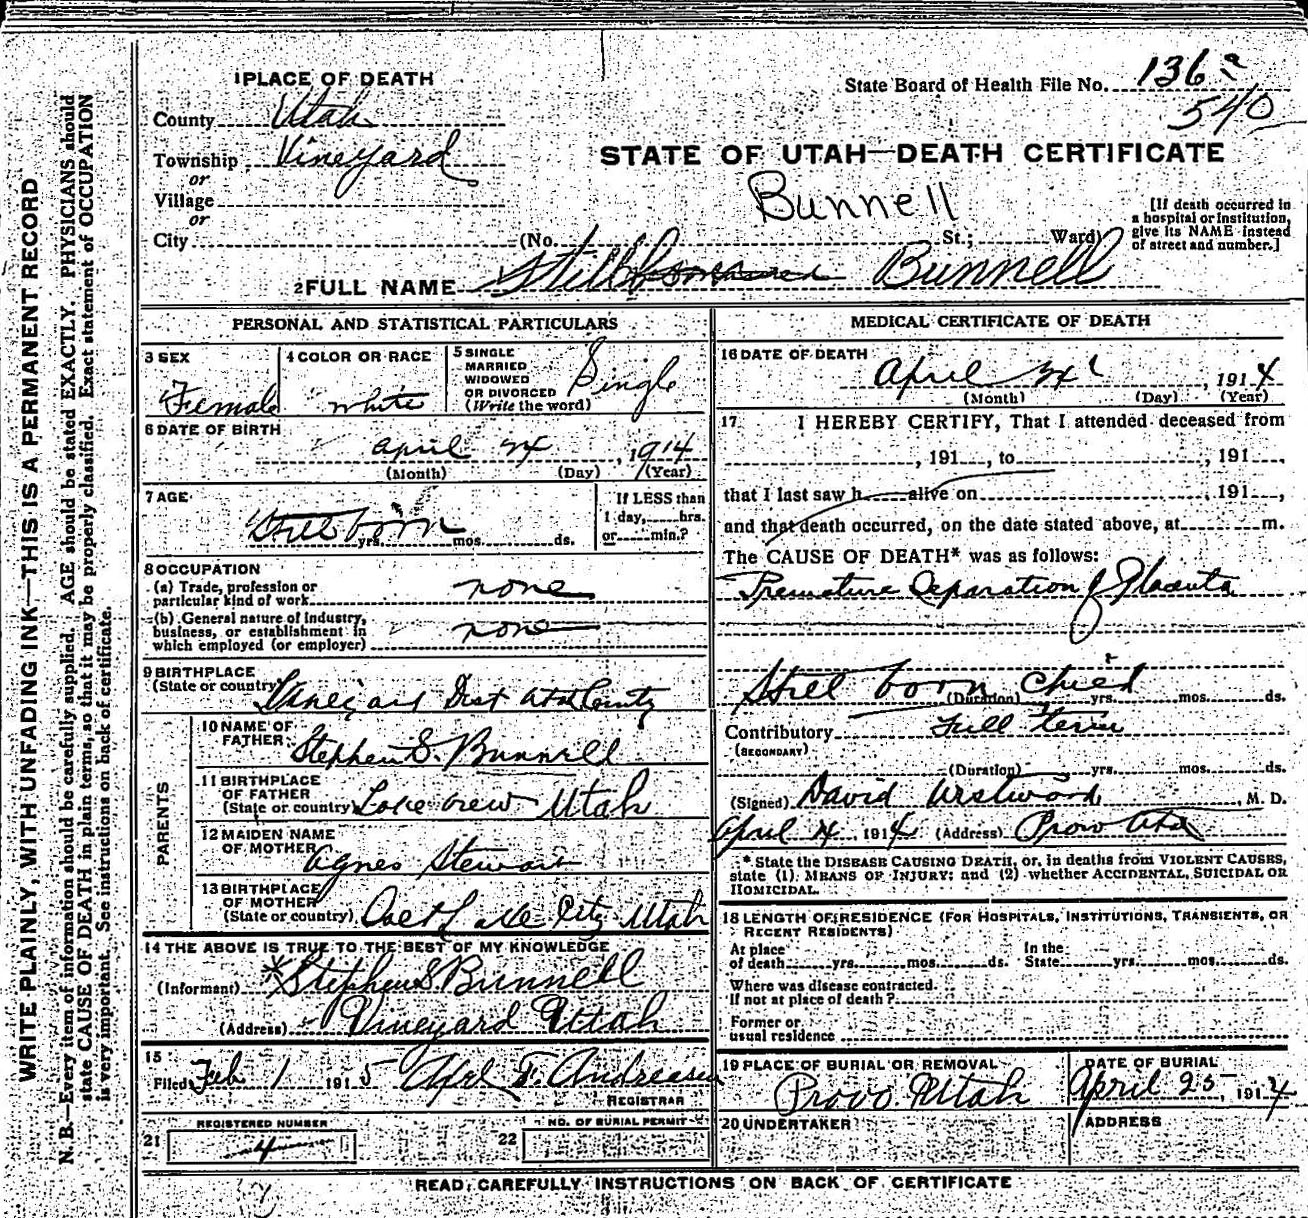 WRITE PLAINLY, WITH UNFADING INK—THIS IS A PERMANENT RECORD
N. B.—Every item of information should be carefully supplied. AGE should be stated EXACTLY. PHYSICIANS should
state CAUSE OF DEATH in plain terms, so that it may be properly classified. Exact statement of OCCUPATION
is very important. See instructions on back of certificate.
1 PLACE OF DEATH
County Utah
Township Vineyard
or
Village
or
City
(No. St.; Ward)
State Board of Health File No. 136
540
STATE OF UTAH—DEATH CERTIFICATE
Bunnell
[If death occurred in
a hospital or institution,
give its NAME instead
of street and number.]
2 FULL NAME Bunnell
PERSONAL AND STATISTICAL PARTICULARS
3 SEX
Female
4 COLOR OR RACE
white
5 SINGLE
MARRIED
WIDOWED
OR DIVORCED
(Write the word)
Single
6 DATE OF BIRTH
april 24, 1914
(Month) (Day) (Year)
7 AGE
Still born
yrs. mos. ds.
If LESS than
1 day, hrs.
or min.?
8 OCCUPATION
(a) Trade, profession or
particular kind of work none
(b) General nature of industry,
business, or establishment in
which employed (or employer) none
9 BIRTHPLACE
(State or country) Vineyard Dist Utah County
PARENTS
10 NAME OF
FATHER Stephen S. Bunnell
11 BIRTHPLACE
OF FATHER
(State or country) Lake view Utah
12 MAIDEN NAME
OF MOTHER Agnes Stewart
13 BIRTHPLACE
OF MOTHER
(State or country) Salt Lake City Utah
14 THE ABOVE IS TRUE TO THE BEST OF MY KNOWLEDGE
(Informant) *Stephen S. Bunnell
(Address) Vineyard Utah
15
Filed Feb 1 1915 F. Andreasen
REGISTRAR
REGISTERED NUMBER
21 4
NO. OF BURIAL PERMIT
22
MEDICAL CERTIFICATE OF DEATH
16 DATE OF DEATH
April 24, 1914
(Month) (Day) (Year)
17 I HEREBY CERTIFY, That I attended deceased from
, 191 , to , 191 ,
that I last saw h alive on 191 ,
and that death occurred, on the date stated above, at m.
The CAUSE OF DEATH* was as follows:
Premature Separation of Placenta
Still born Child
(Duration) yrs. mos. ds.
Contributory Full term
(SECONDARY)
(Duration) yrs. mos. ds.
(Signed) David Westwood, M. D.
April 4, 1914 (Address) Provo Utah
* State the DISEASE CAUSING DEATH, or, in deaths from VIOLENT CAUSES,
state (1) MEANS OF INJURY; and (2) whether ACCIDENTAL, SUICIDAL OR
HOMICIDAL.
18 LENGTH OF RESIDENCE (FOR HOSPITALS, INSTITUTIONS, TRANSIENTS, OR
RECENT RESIDENTS)
At place
of death yrs. mos. ds.
In the
State yrs. mos. ds.
Where was disease contracted
If not at place of death?
Former or
usual residence
19 PLACE OF BURIAL OR REMOVAL
Provo Utah
DATE OF BURIAL
April 25, 1914
20 UNDERTAKER
ADDRESS
READ CAREFULLY INSTRUCTIONS ON BACK OF CERTIFICATE